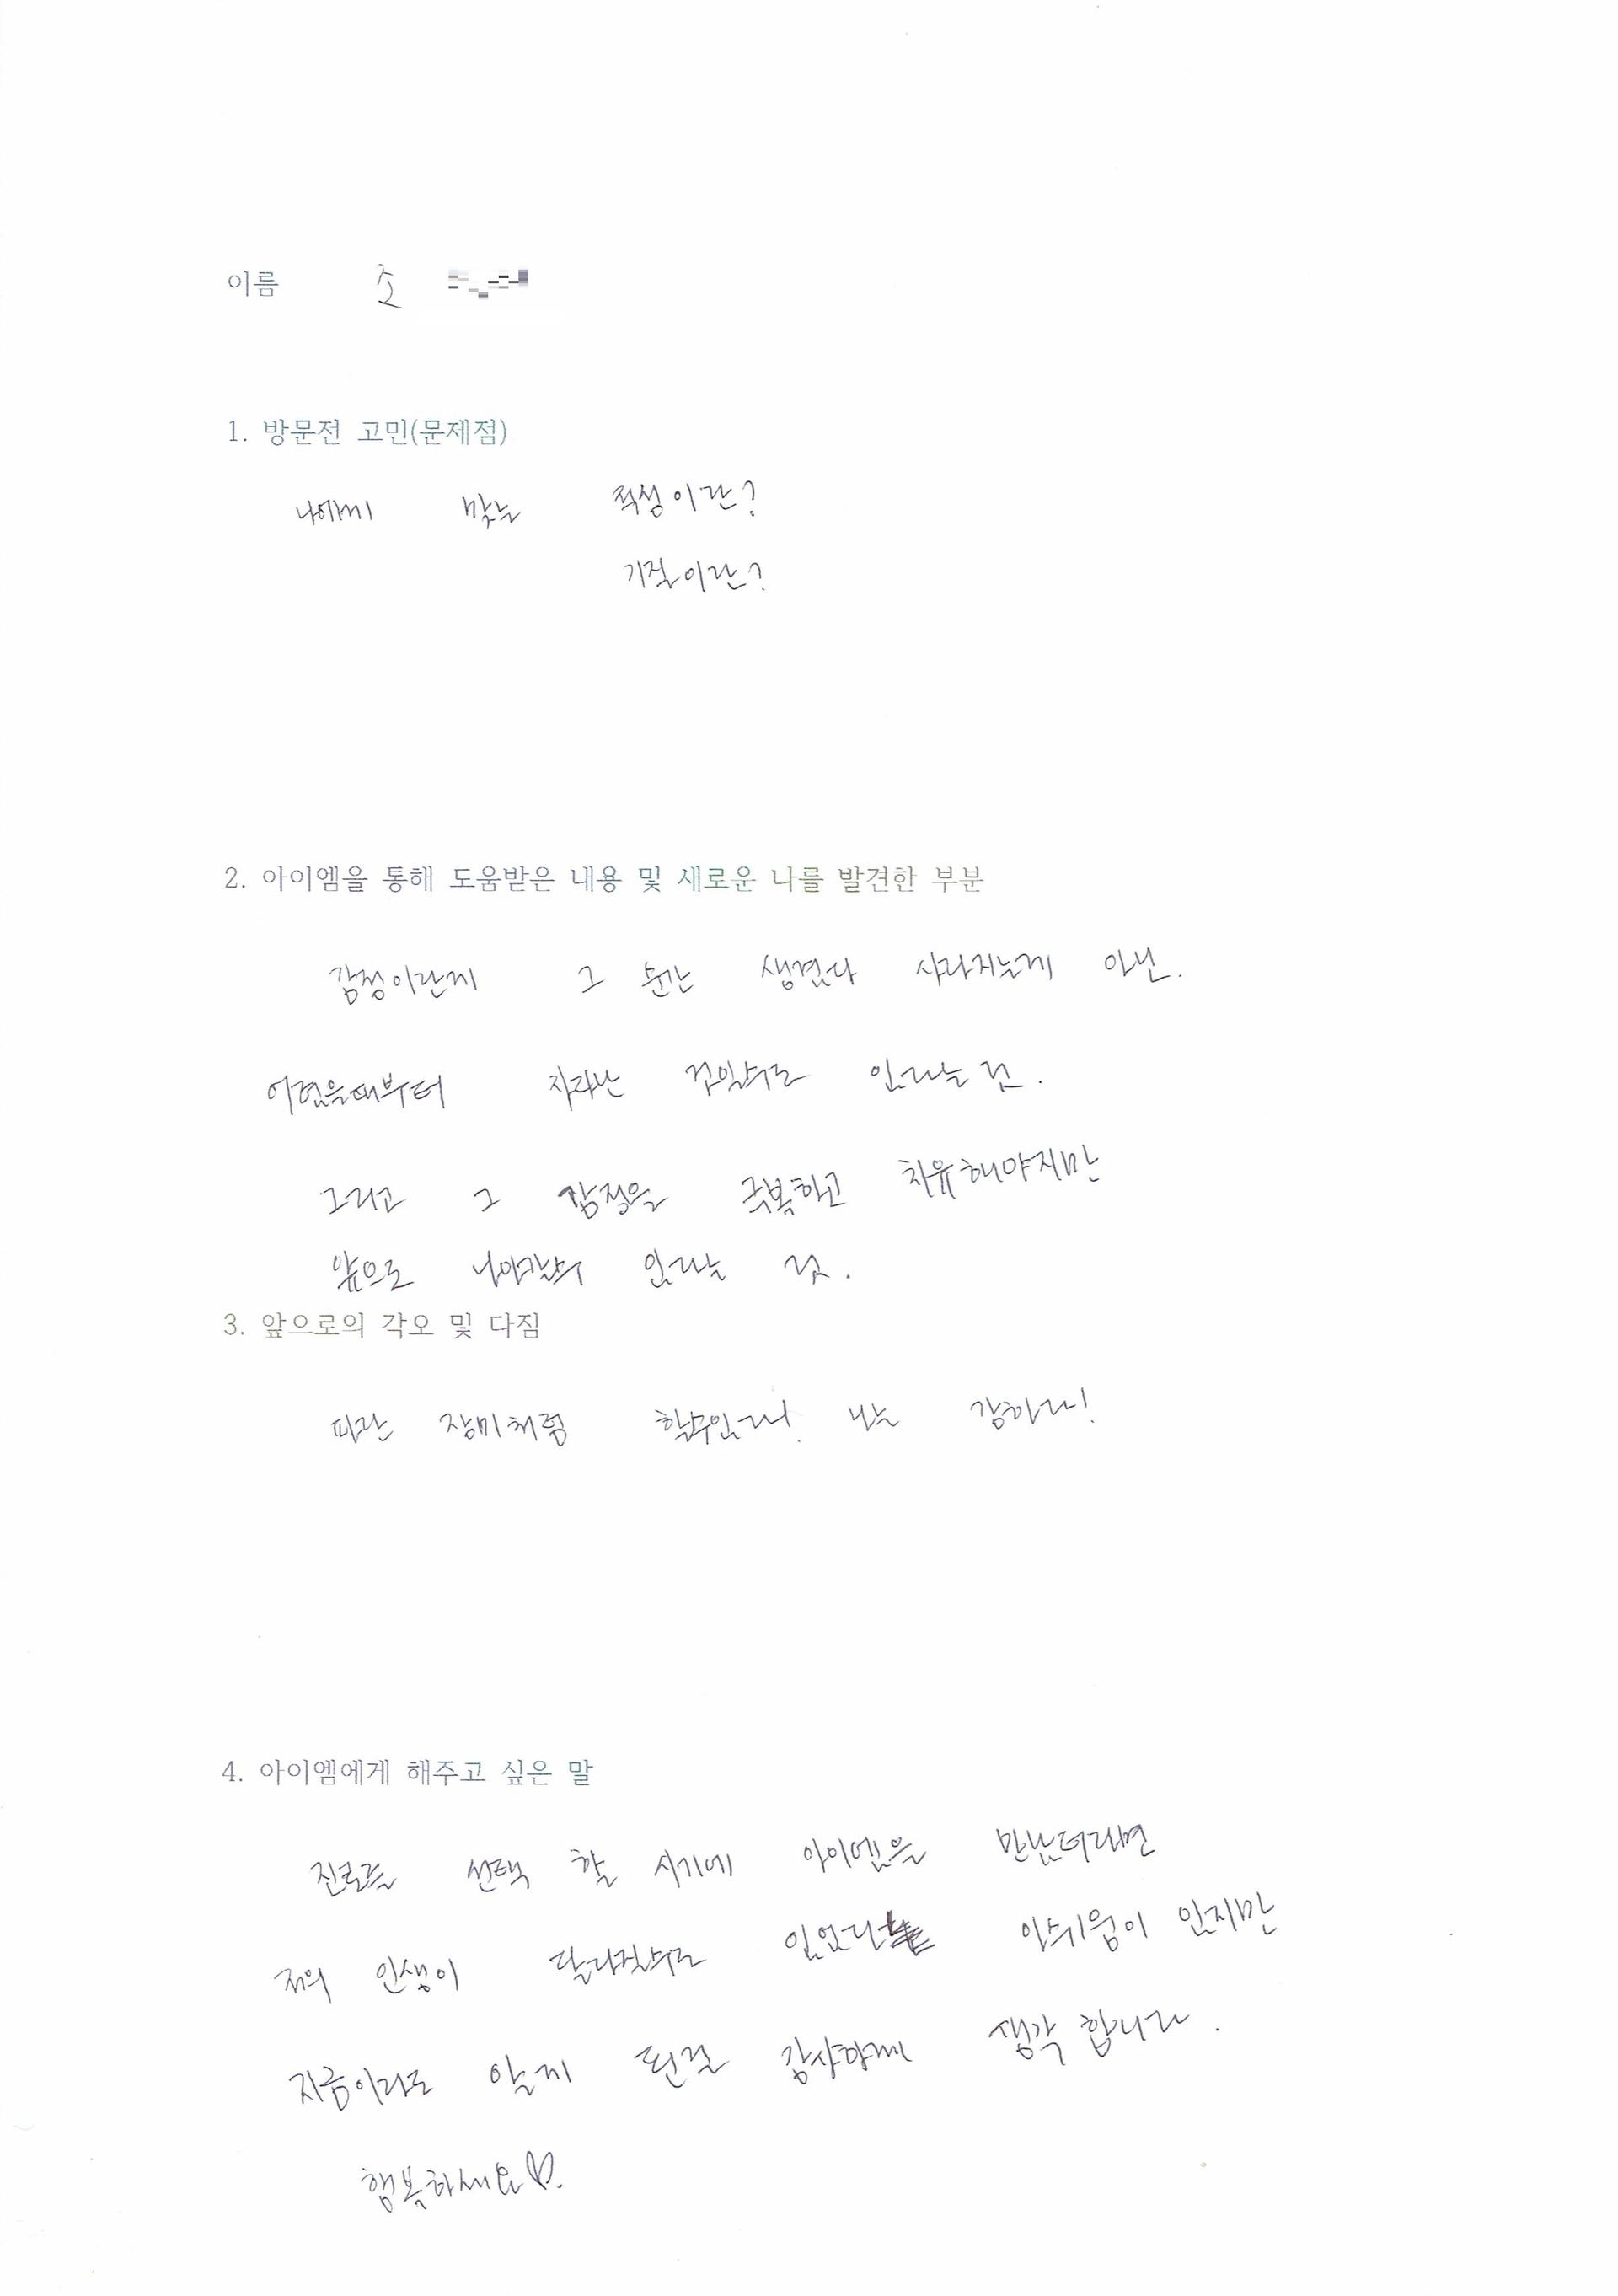 이름 조
1. 방문전 고민(문제점)
나에게 맞는 적성이란?
기질이란?
2. 아이엠을 통해 도움받은 내용 및 새로운 나를 발견한 부분
감정이란게 그 순간 생겼다 사라지는게 아닌.
어렸을때부터 자라난 것일수도 있다는 것.
그리고 그 감정을 극복하고 치유해야지만
앞으로 나아갈수 있다는 것.
3. 앞으로의 각오 및 다짐
파란 장미처럼 할수있다! 나는 강하다!
4. 아이엠에게 해주고 싶은 말
진로를 선택 할 시기에 아이엠을 만났더라면
저의 인생이 달라질수도 있었다는 아쉬움이 있지만
지금이라도 알게 된걸 감사하게 생각 합니다.
행복하세요♡.